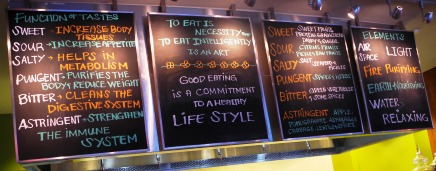 FUNCTION OF TASTES
SWEET → INCREASE BODY
TISSUES
SOUR → INCREASE APPETITE
SALTY → HELPS IN
METABOLISM
PUNGENT → PURIFIES THE
BODY & REDUCE WEIGHT
BITTER → CLEANS THE
DIGESTIVE SYSTEM
ASTRINGENT → STRENGTHEN
THE IMMUNE
SYSTEM
TO EAT IS
NECESSITY
TO EAT INTELLIGENTLY
IS AN ART
GOOD EATING
IS A COMMITMENT
TO A HEALTHY
LIFE STYLE
SWEET
SOUR
SALTY SALT
PUNGENT
BITTER
& SOME SPICES
ASTRINGENT APPLE
ELEMENTS
AIR
SPACE LIGHT
FIRE PURIFYING
EARTH NOURISHING
WATER
RELAXING